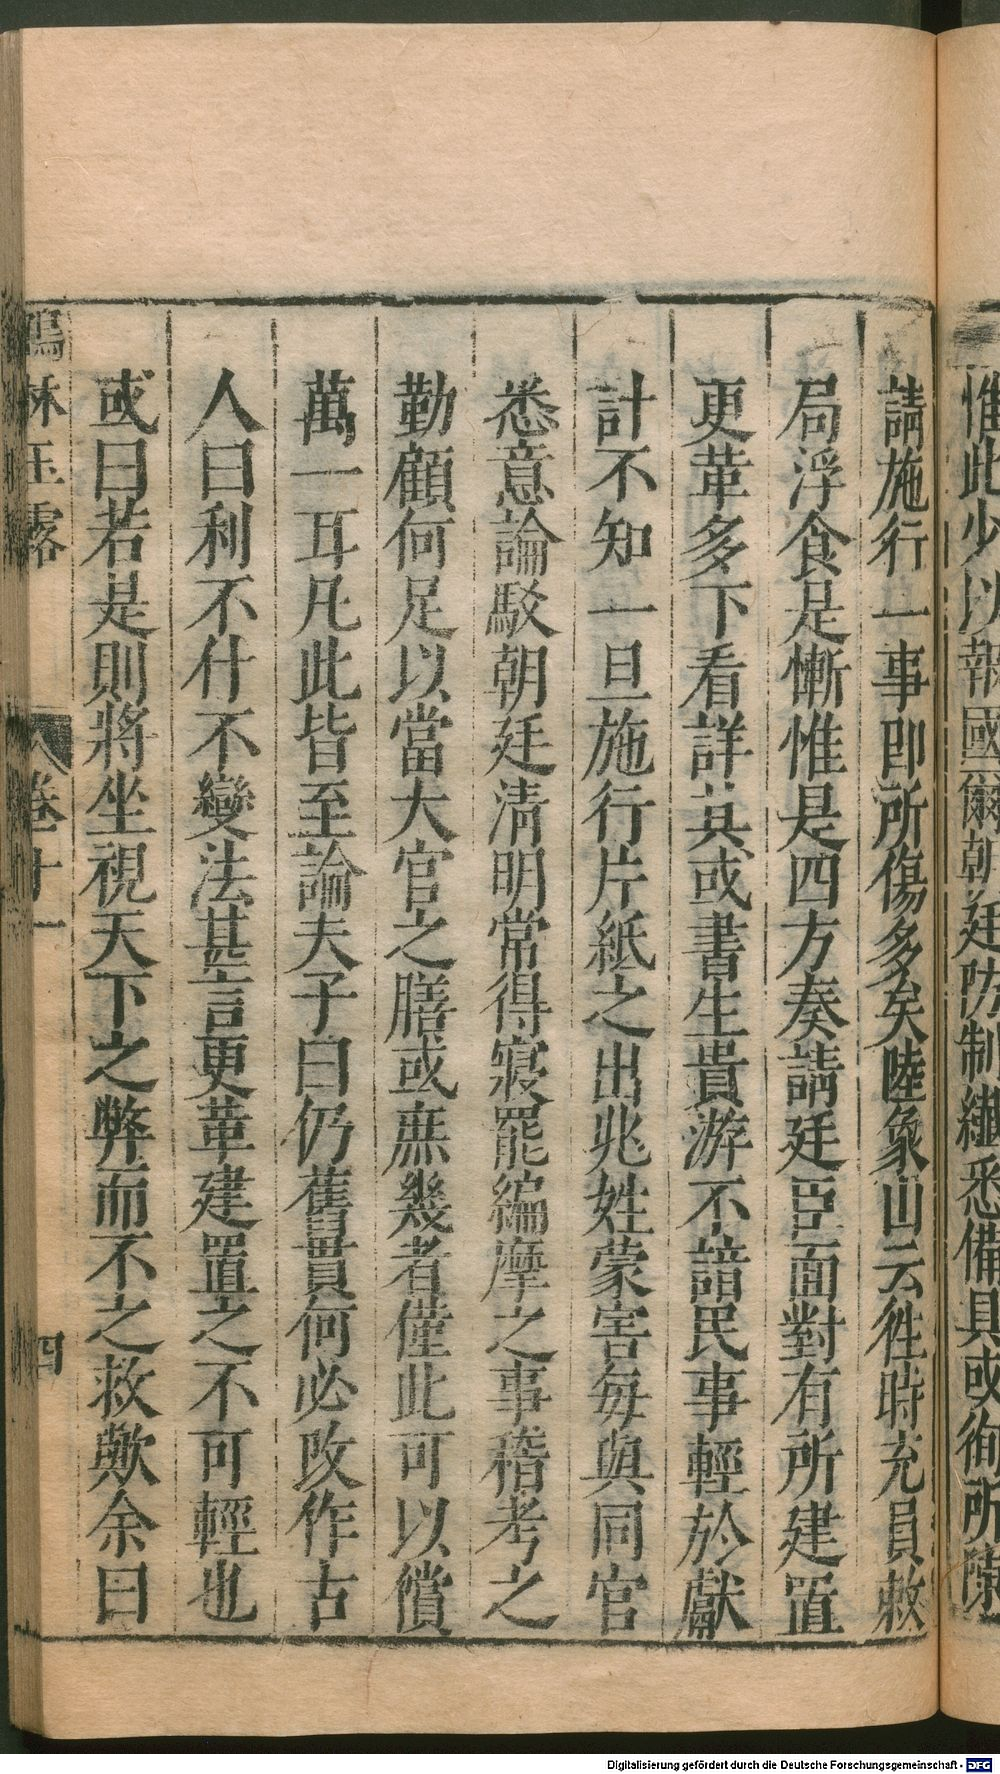 惟此少以報國爾朝廷防制纖悉備具或徇所陳
請施行一事卽所傷多矣陸象山云徃時充員敕
局浮食是慚惟是四方奏請廷臣面對有所建置
更革多下看詳其或書生貴游不諳民事輕於獻
計不知一旦施行片紙之出兆姓蒙害每與同官
悉意論駁朝廷淸明常得寢罷編摩之事稽考之
勤顧何足以當大官之膳或庶幾者僅此可以償
萬一耳凡此皆至論夫子曰仍舊貫何必改作古
人曰利不什不變法甚言更革建置之不可輕也
或曰若是則將坐視天下之弊而不之救歟余曰
鶴林玉露 卷十一 四
Digitalisierung gefördert durch die Deutsche Forschungsgemeinschaft - DFG